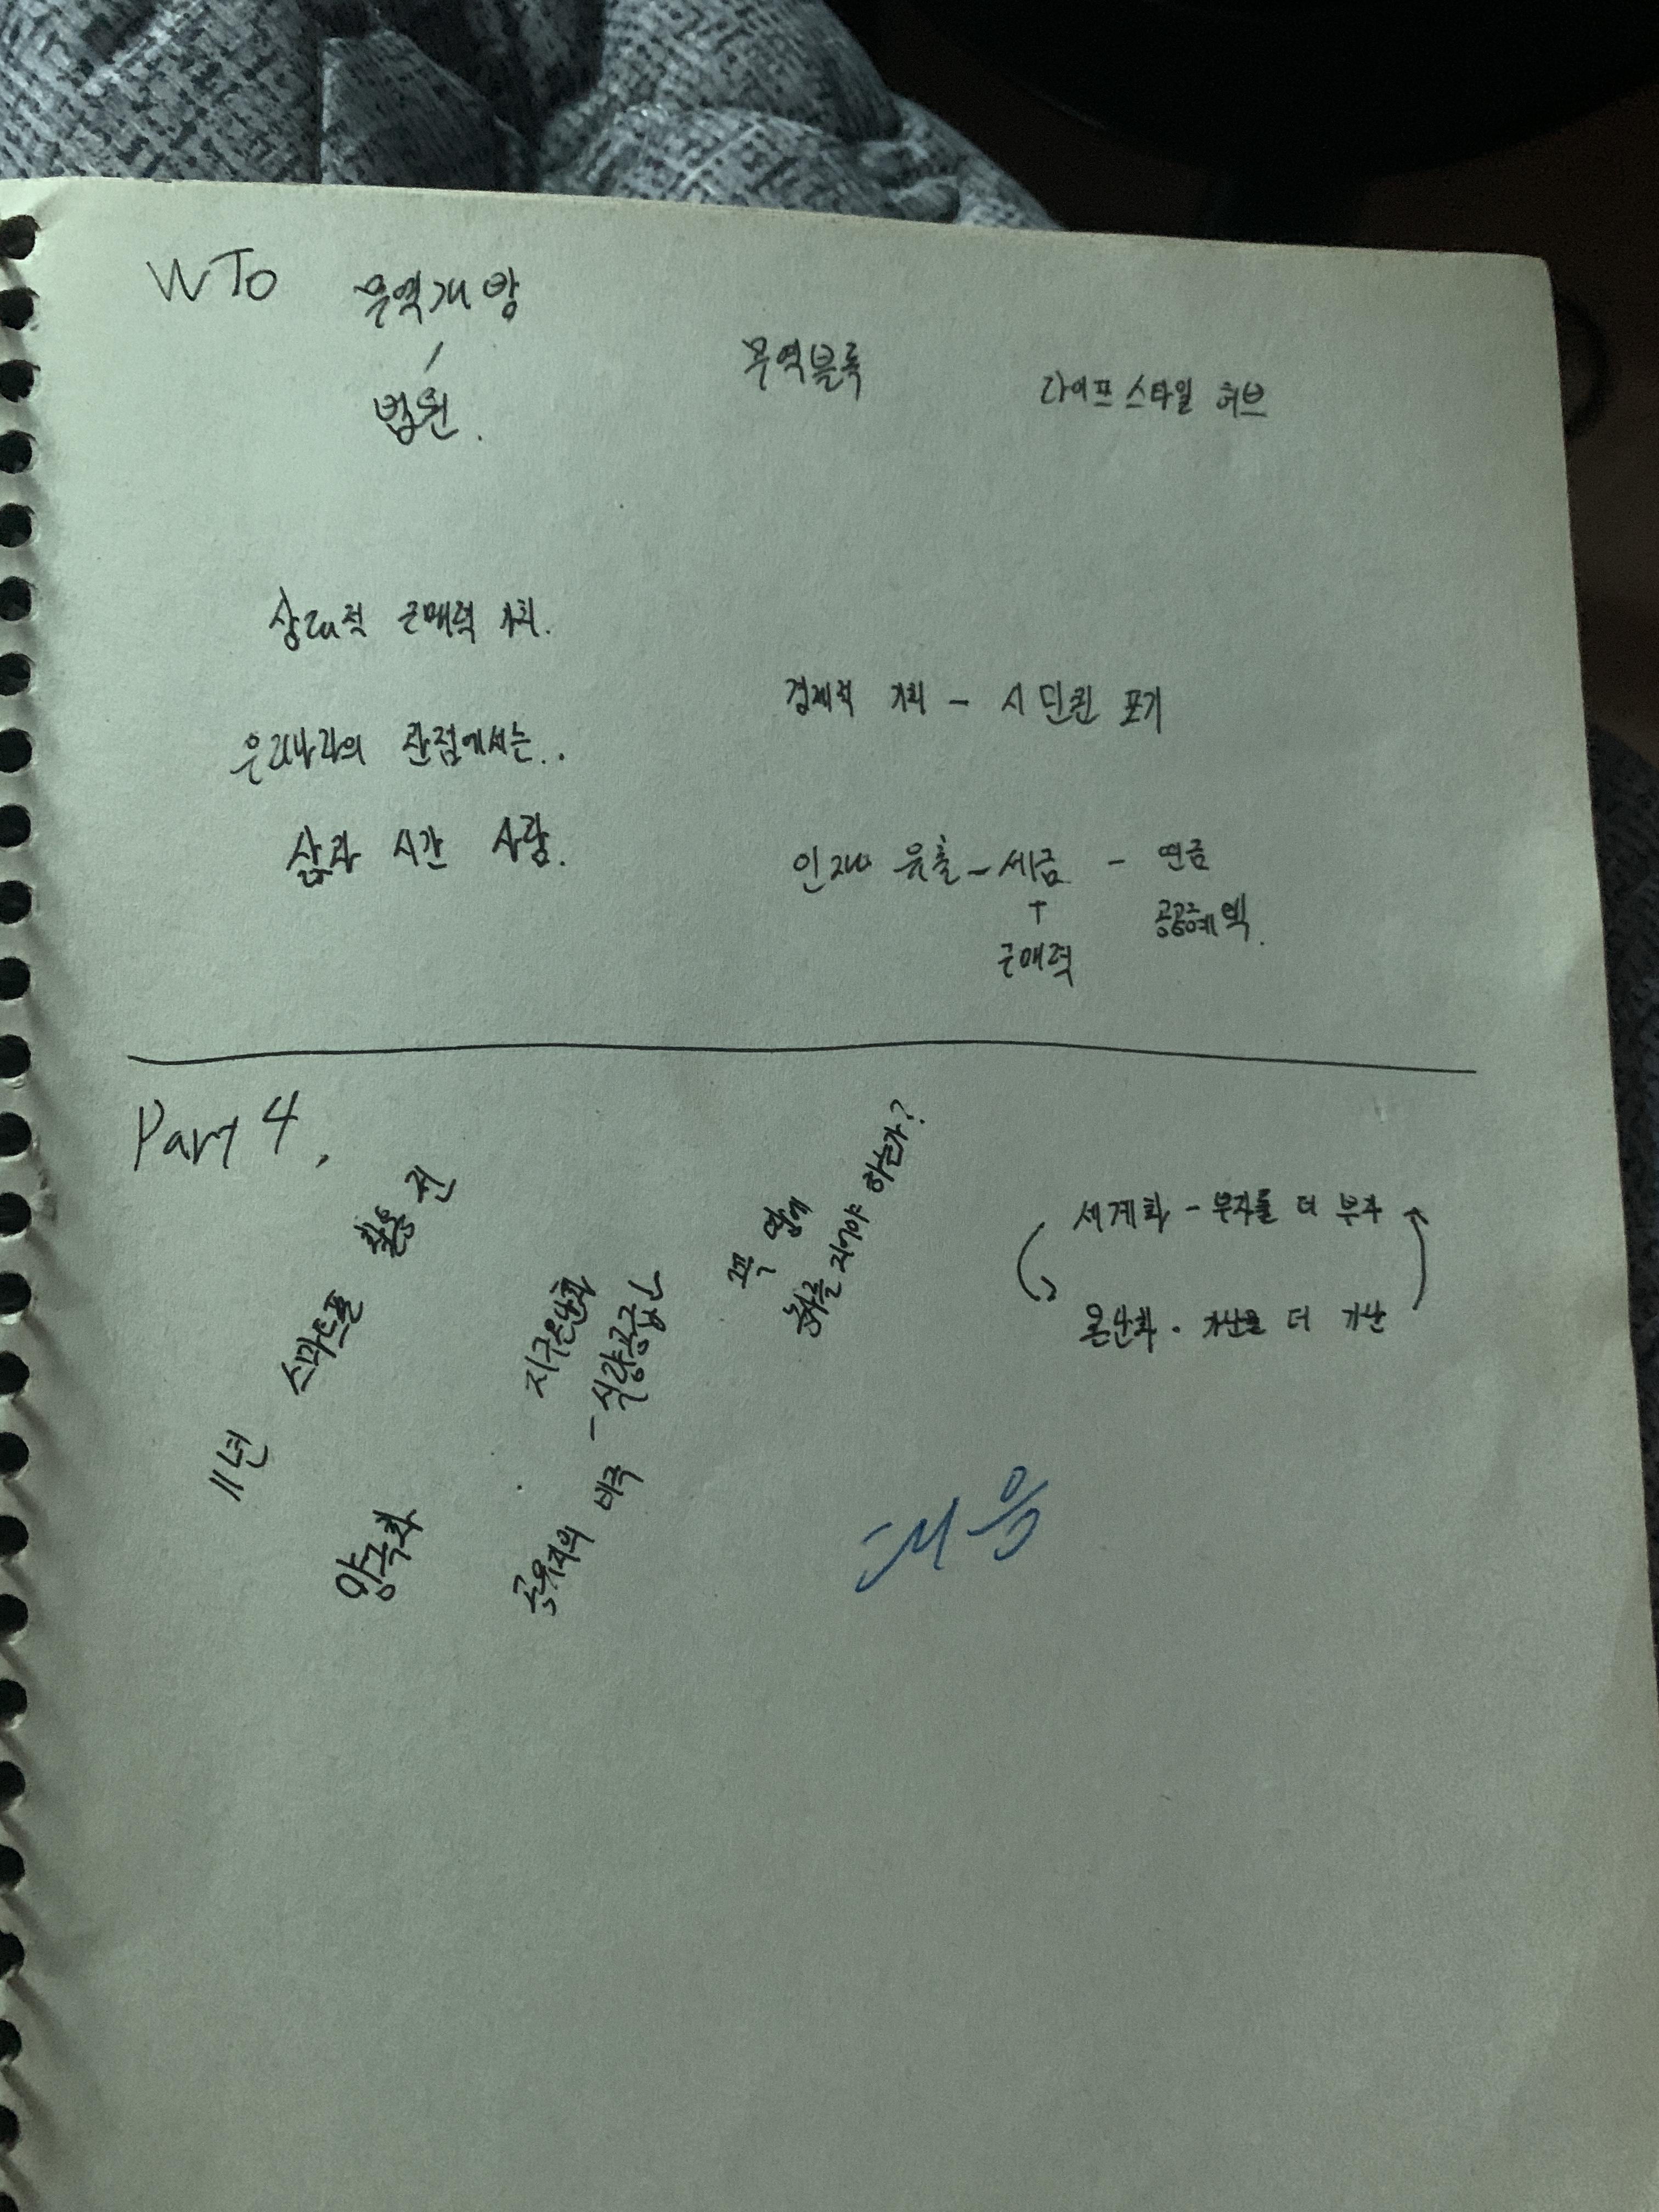 WTO 무역개방
/
법원.
무역블록
라이프스타일 허브
상대적 구매력 기회.
우리나라의 관점에서는..
삶과 시간 사람.
경제적 기회 - 시민권 포기
인재 유출 - 세금 - 연금
구매력
공공예액.
Part 4.
11년 스마트폰 활용 전
양극화
지구온난화
공유지의 비극 - 식량공급↓
꼭 옆에
지어야 하는가?
세계화 - 부자를 더 부자
온난화 · 가난을 더 가난
대응